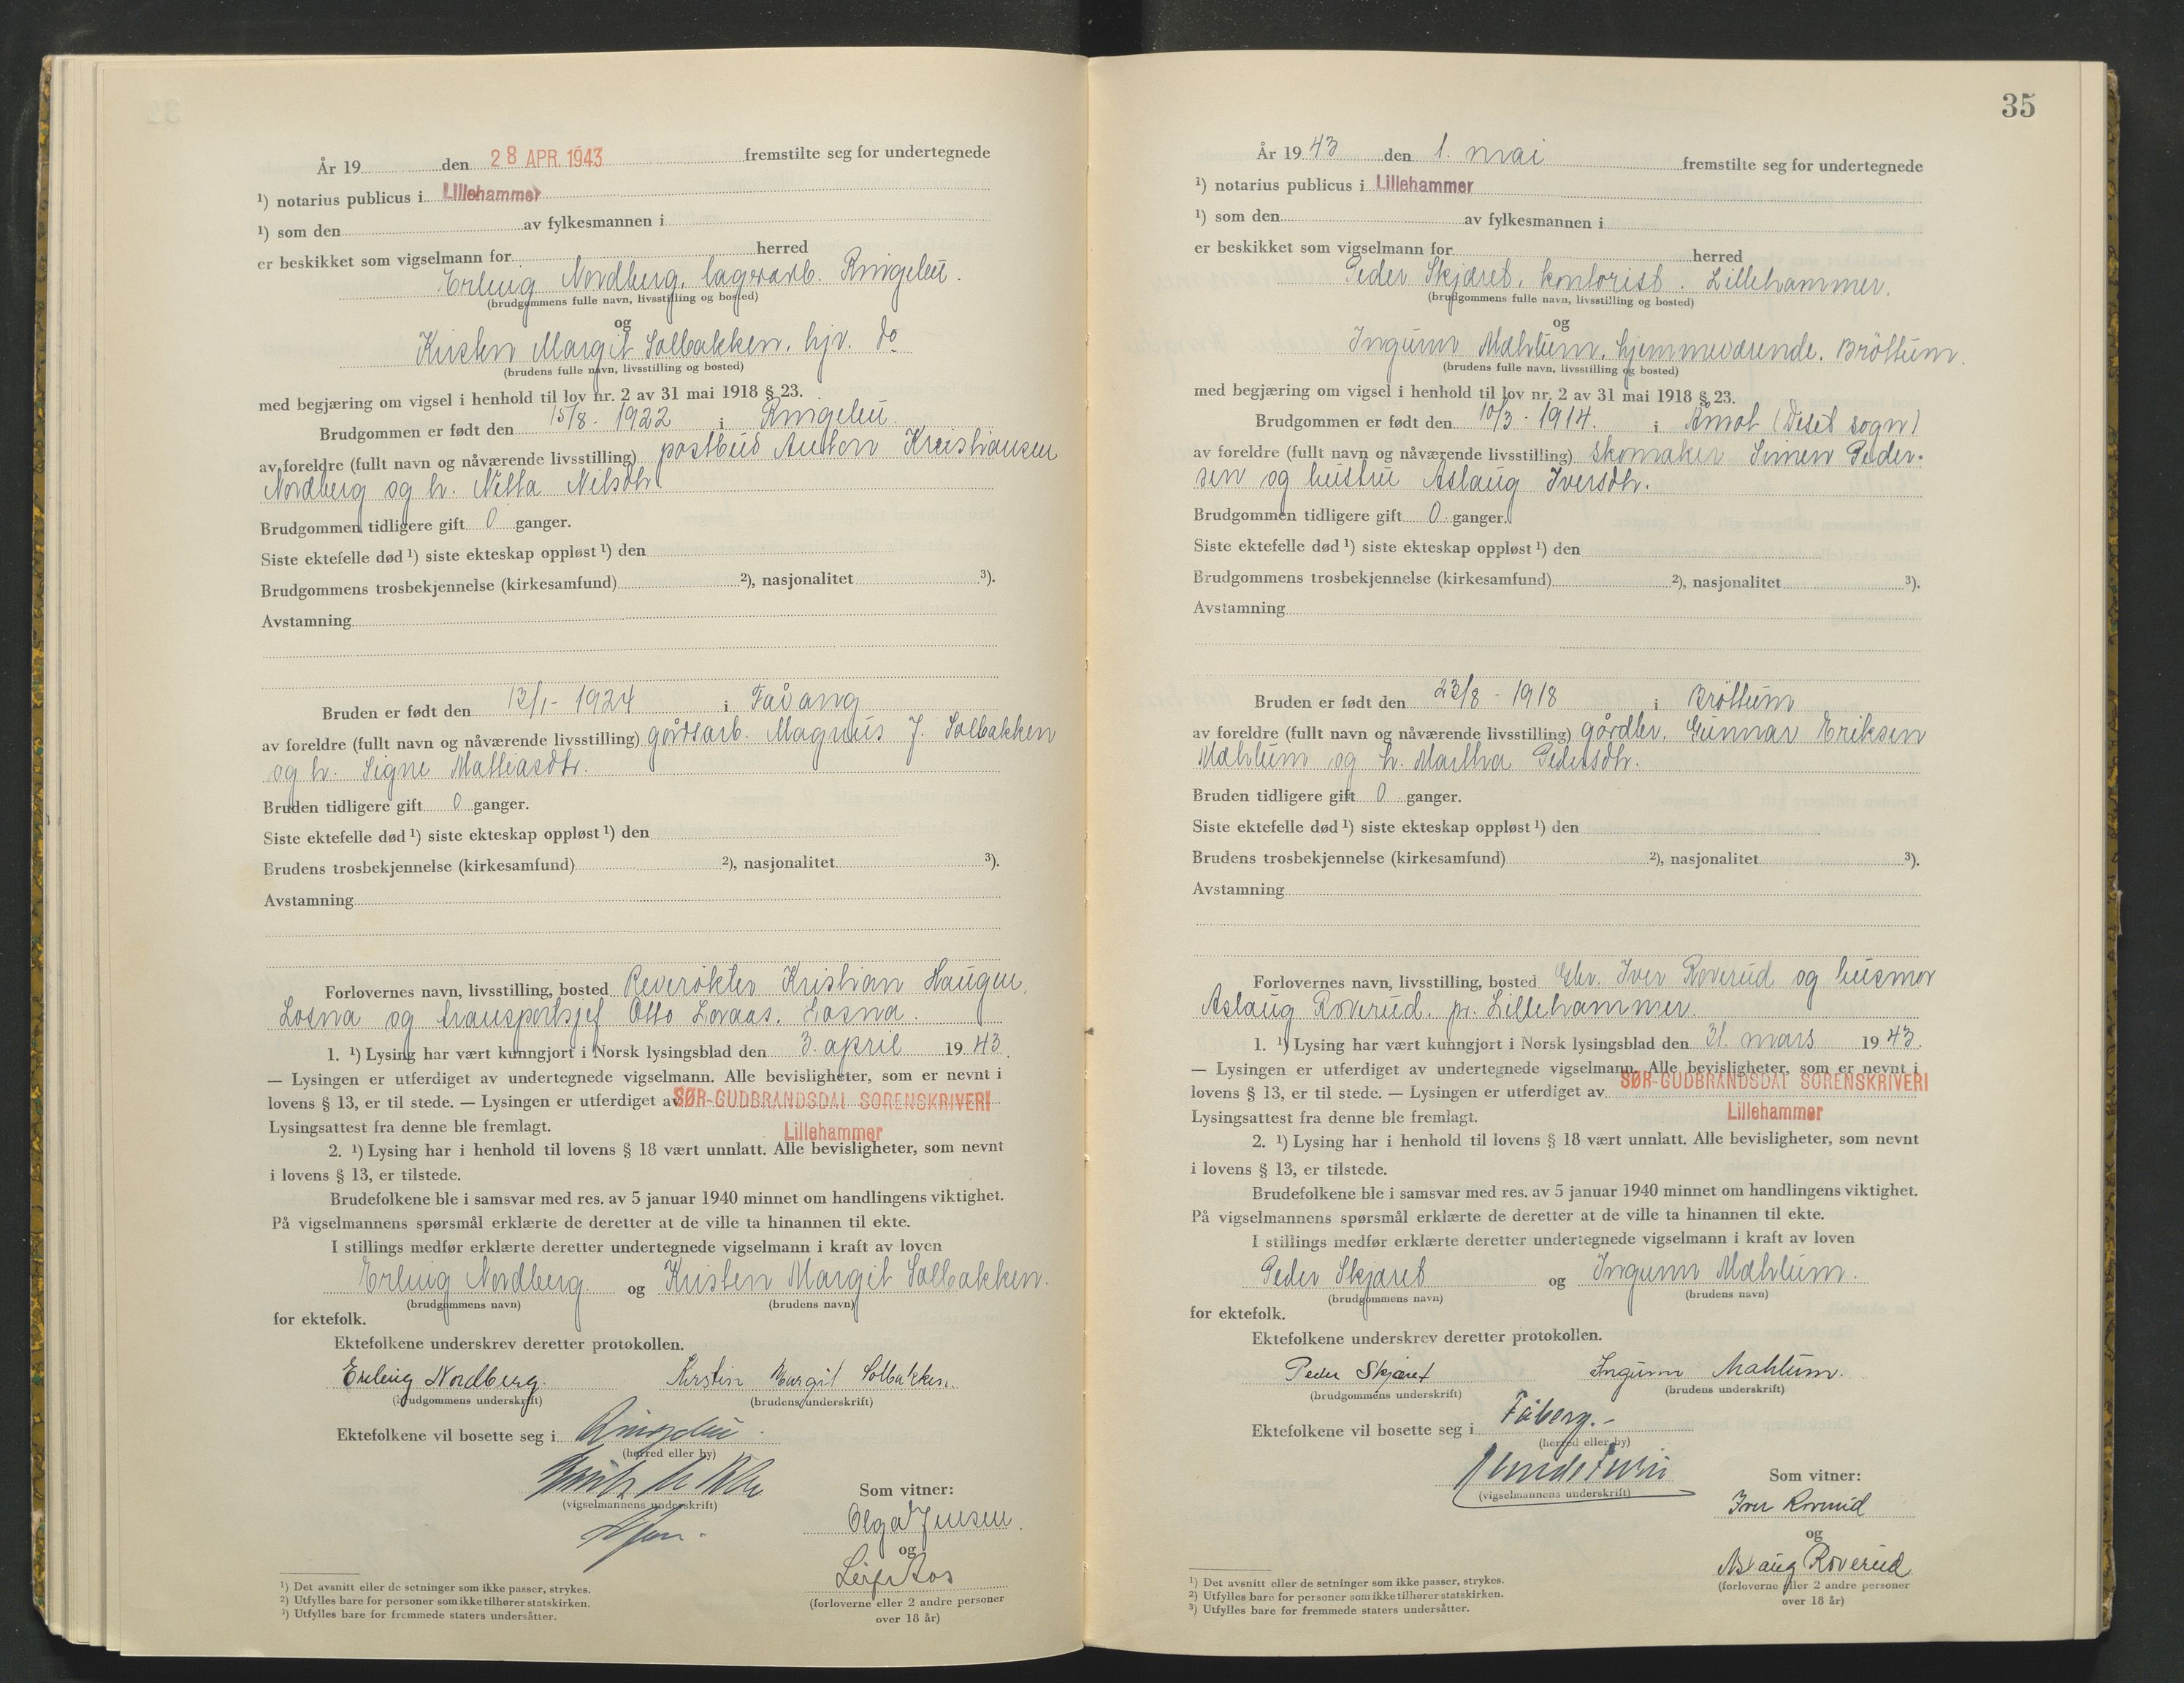 År 19 den 28 APR. 1943 fremstilte seg for undertegnede
¹) notarius publicus i Lillehammer
¹) som den av fylkesmannen i
er beskikket som vigselmann for herred
Erling Nordberg, lagerarb. Ringebu.
(brudgommens fulle navn, livsstilling og bosted)
og
Kirsten Margit Solbakken, hjv. do
(brudens fulle navn, livsstilling og bosted)
med begjæring om vigsel i henhold til lov nr. 2 av 31 mai 1918 § 23.
Brudgommen er født den 15/8 - 1922 i Ringebu.
av foreldre (fullt navn og nåværende livsstilling) postbud Anton Kristiansen
Nordberg og h. Netta Nilsdtr
Brudgommen tidligere gift 0 ganger.
Siste ektefelle død ¹) siste ekteskap oppløst ¹) den
Brudgommens trosbekjennelse (kirkesamfund) ²), nasjonalitet ³).
Avstamning
Bruden er født den 13/1 - 1924 i Fåvang
av foreldre (fullt navn og nåværende livsstilling) gårdsarb. Magnus J. Solbakken
og h. Signe Mattiasdtr.
Bruden tidligere gift 0 ganger.
Siste ektefelle død ¹) siste ekteskap oppløst ¹) den
Brudens trosbekjennelse (kirkesamfund) ²), nasjonalitet ³).
Avstamning
Forlovernes navn, livsstilling, bosted Reverøkter Kristian Haugen,
Losna og transportsjef Otto Lovaas, Losna.
1. ¹) Lysing har vært kunngjort i Norsk lysingsblad den 3. april 19 43.
— Lysingen er utferdiget av undertegnede vigselmann. Alle bevisligheter, som er nevnt i
lovens § 13, er til stede. — Lysingen er utferdiget av SØR-GUDBRANDSDAL SORENSKRIVERI
Lysingsattest fra denne ble fremlagt. Lillehammer
2. ¹) Lysing har i henhold til lovens § 18 vært unnlatt. Alle bevisligheter, som nevnt
i lovens § 13, er tilstede.
Brudefolkene ble i samsvar med res. av 5 januar 1940 minnet om handlingens viktighet.
På vigselmannens spørsmål erklærte de deretter at de ville ta hinannen til ekte.
I stillings medfør erklærte deretter undertegnede vigselmann i kraft av loven
Erling Nordberg og Kirsten Margit Solbakken.
(brudgommens navn) (brudens navn)
for ektefolk.
Ektefolkene underskrev deretter protokollen.
Erling Nordberg. Kirstin Margit Solbakken.
(brudgommens underskrift) (brudens underskrift)
Ektefolkene vil bosette seg i Ringebu
(herred eller by)
Som vitner:
(vigselmannens underskrift)
Olga Jensen.
og
Leif Aos
(forloverne eller 2 andre personer
over 18 år)
¹) Det avsnitt eller de setninger som ikke passer, strykes.
²) Utfylles bare for personer som ikke tilhører statskirken.
³) Utfylles bare for fremmede staters undersåtter.
35
År 19 43 den 1. mai fremstilte seg for undertegnede
¹) notarius publicus i Lillehammer
¹) som den av fylkesmannen i
er beskikket som vigselmann for herred
Peder Skjæret, kontorist. Lillehammer.
(brudgommens fulle navn, livsstilling og bosted)
og
Ingunn Mæhlum, hjemmeværende. Brøttum.
(brudens fulle navn, livsstilling og bosted)
med begjæring om vigsel i henhold til lov nr. 2 av 31 mai 1918 § 23.
Brudgommen er født den 10/3 - 1914. i Åmot (Deset sogn)
av foreldre (fullt navn og nåværende livsstilling) skomaker Simen Peder-
sen og hustru Aslaug Iversdtr.
Brudgommen tidligere gift 0 ganger.
Siste ektefelle død ¹) siste ekteskap oppløst ¹) den
Brudgommens trosbekjennelse (kirkesamfund) ²), nasjonalitet ³).
Avstamning
Bruden er født den 23/8 - 1918 i Brøttum
av foreldre (fullt navn og nåværende livsstilling) gårdbr. Gunnar Eriksen
Mæhlum og h. Martha Pedersdtr.
Bruden tidligere gift 0 ganger.
Siste ektefelle død ¹) siste ekteskap oppløst ¹) den
Brudens trosbekjennelse (kirkesamfund) ²), nasjonalitet ³).
Avstamning
Forlovernes navn, livsstilling, bosted Gbr. Iver Roverud og husmor
Aslaug Roverud. pr. Lillehammer.
1. ¹) Lysing har vært kunngjort i Norsk lysingsblad den 31. mars 19 43.
— Lysingen er utferdiget av undertegnede vigselmann. Alle bevisligheter, som er nevnt i
lovens § 13, er til stede. — Lysingen er utferdiget av SØR-GUDBRANDSDAL SORENSKRIVERI
Lysingsattest fra denne ble fremlagt. Lillehammer
2. ¹) Lysing har i henhold til lovens § 18 vært unnlatt. Alle bevisligheter, som nevnt
i lovens § 13, er tilstede.
Brudefolkene ble i samsvar med res. av 5 januar 1940 minnet om handlingens viktighet.
På vigselmannens spørsmål erklærte de deretter at de ville ta hinannen til ekte.
I stillings medfør erklærte deretter undertegnede vigselmann i kraft av loven
Peder Skjæret og Ingunn Mæhlum.
(brudgommens navn) (brudens navn)
for ektefolk.
Ektefolkene underskrev deretter protokollen.
Peder Skjæret Ingunn Mæhlum.
(brudgommens underskrift) (brudens underskrift)
Ektefolkene vil bosette seg i Fåberg.-
(herred eller by)
(vigselmannens underskrift)
Som vitner:
Iver Roverud
og
Aslaug Roverud
(forloverne eller 2 andre personer
over 18 år)
¹) Det avsnitt eller de setninger som ikke passer, strykes.
²) Utfylles bare for personer som ikke tilhører statskirken.
³) Utfylles bare for fremmede staters undersåtter.